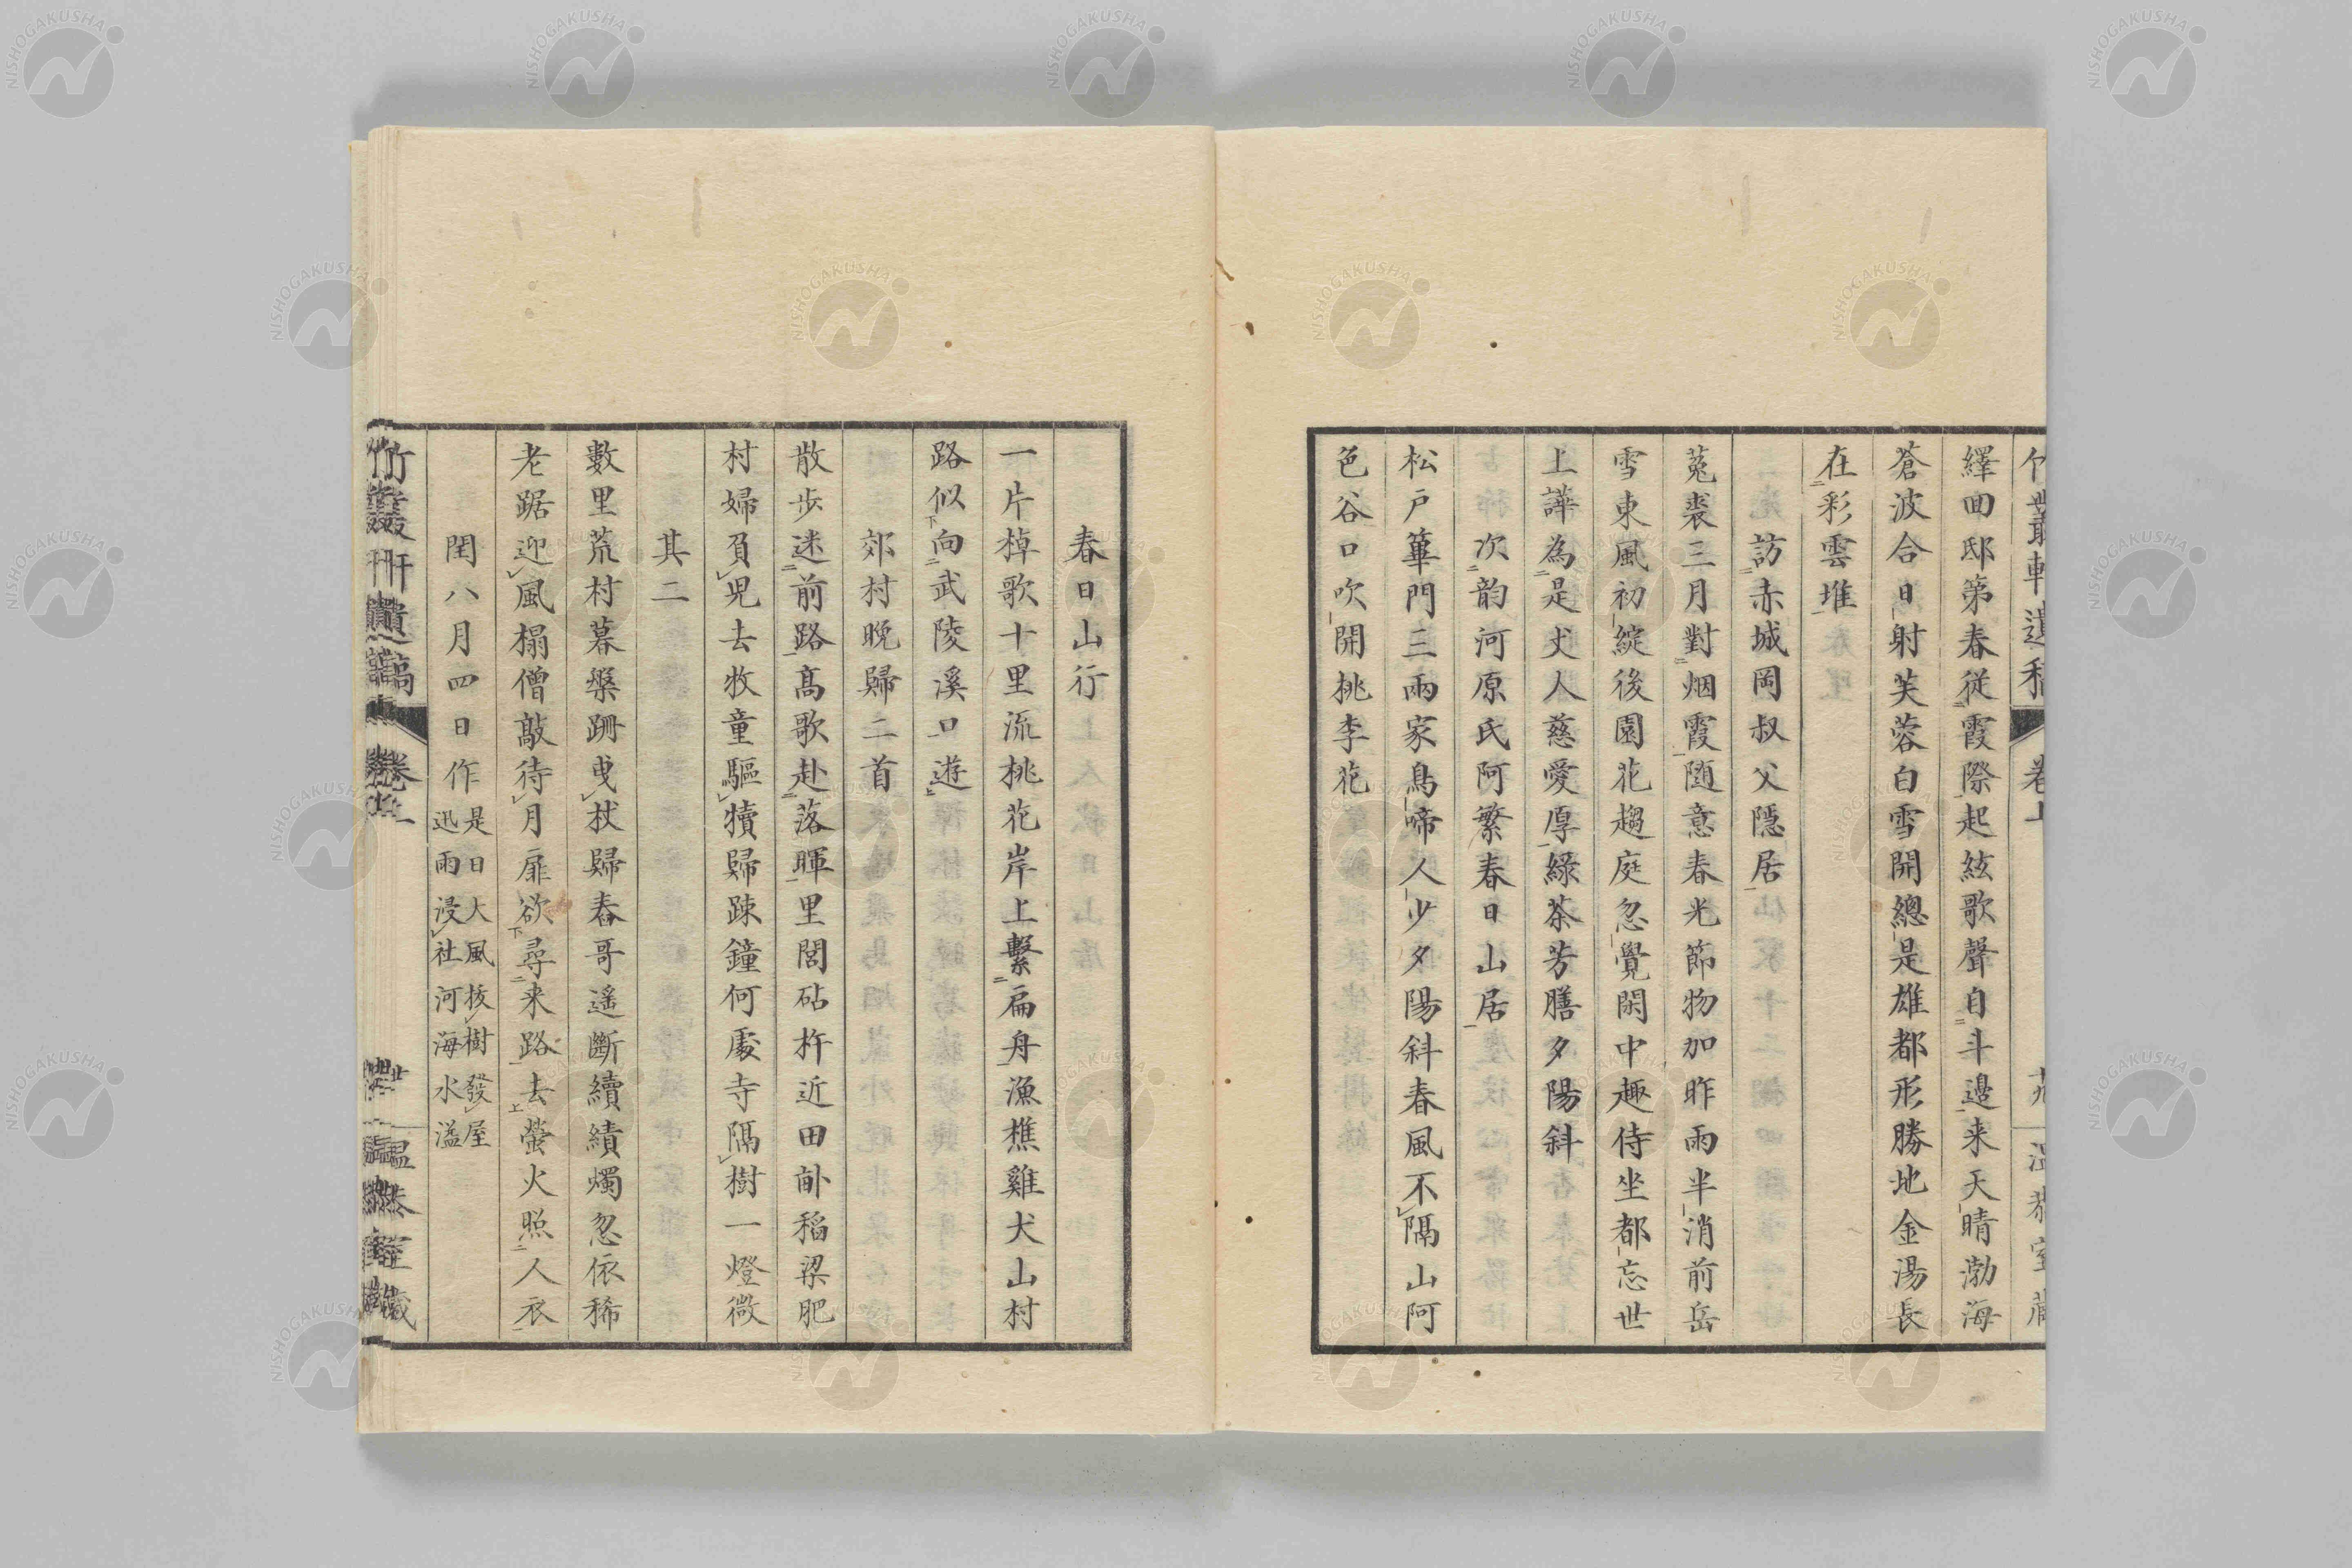 繹囬邸第春從霞際起絃歌聲自斗邊来天晴渤海
蒼波合日射芙蓉白雪開總是雄都形勝地金湯長
在彩雲堆
訪赤城岡叔父隱居
菟裘三月對烟霞随意春光節物加昨雨半消前岳
雪東風初綻後園花趨庭忽覺閑中趣侍坐都忘世
上譁為是丈人慈愛厚緑茶芳膳夕陽斜
次韵河原氏阿繁春日山居
松戸蓽門三兩家鳥啼人少夕陽斜春風不隔山阿
色谷口吹開桃李花
春日山行
一片棹歌十里流桃花岸上繫扁舟漁樵雞犬山村
路似向武陵溪口遊
郊村晩歸二首
散歩迷前路高歌赴落暉里閭砧杵近田畝稻粱肥
村婦負児去牧童驅犢歸踈鐘何處寺隔樹一燈微
其二
數里荒村暮槃跚曳杖歸舂哥遥斷續績燭忽依稀
老踞迎風榻僧敲待月扉欲尋来路去螢火照人衣
閏八月四日作
是日大風拔樹發屋
迅雨浸社河海水溢